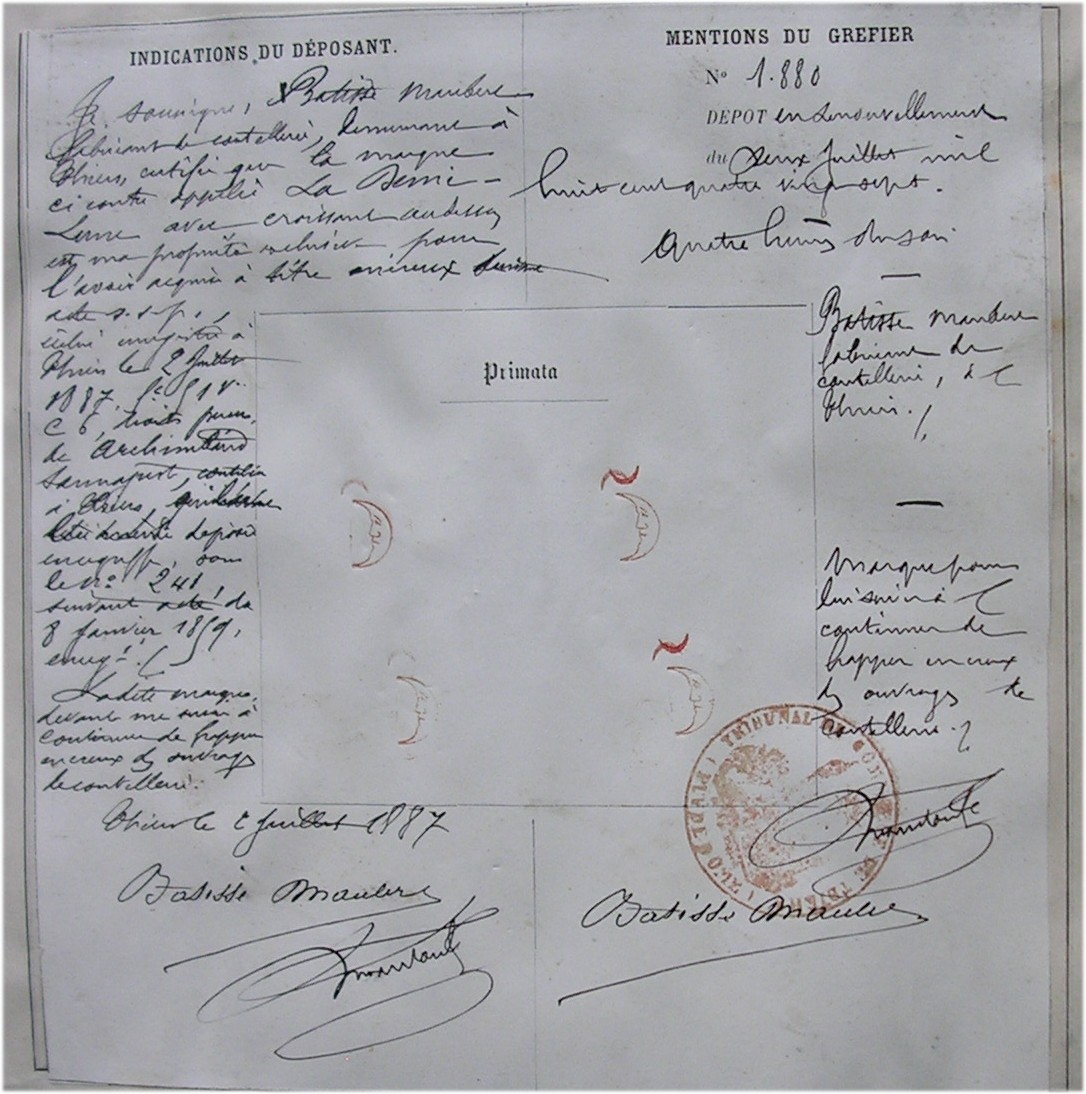 INDICATIONS DU DÉPOSANT.
Je soussigné, Batisse Maubert
fabricant de coutellerie, demeurant à
Thiers, certifie que la marque
ci contre appelée La Demi-
Lune avec croissant au dessus
est ma propriété exclusive pour
l'avoir acquise à titre onéreux suivant
acte s.s.p.,
enregistré à
Thiers le 2 Juillet
1887, f° 51 v°
C 6,
de Archimbaud
Sannajust, coutelier
à Thiers,
déposée
au greffe, sous
le N° 241,
suivant acte du
8 Janvier 1859,
enreg-é.
Ladite marque
devant me servir à
continuer de frapper
en creux des ouvrages
de coutellerie.
Thiers le 2 Juillet 1887
Batisse Maubert
MENTIONS DU GREFIER
N° 1.880
DÉPOT en renouvellement
du deux Juillet mil
huit cent quatre vingt sept.
Quatre heures du soir
Batisse Maubert
fabricant de
coutellerie, à
Thiers.
Marque pour
lui servir à
continuer de
frapper en creux
des ouvrages de
coutellerie.
Primata
TRIBUNAL DE COMMERCE DE THIERS
(PUY-DE-DOME)
Batisse Maubert